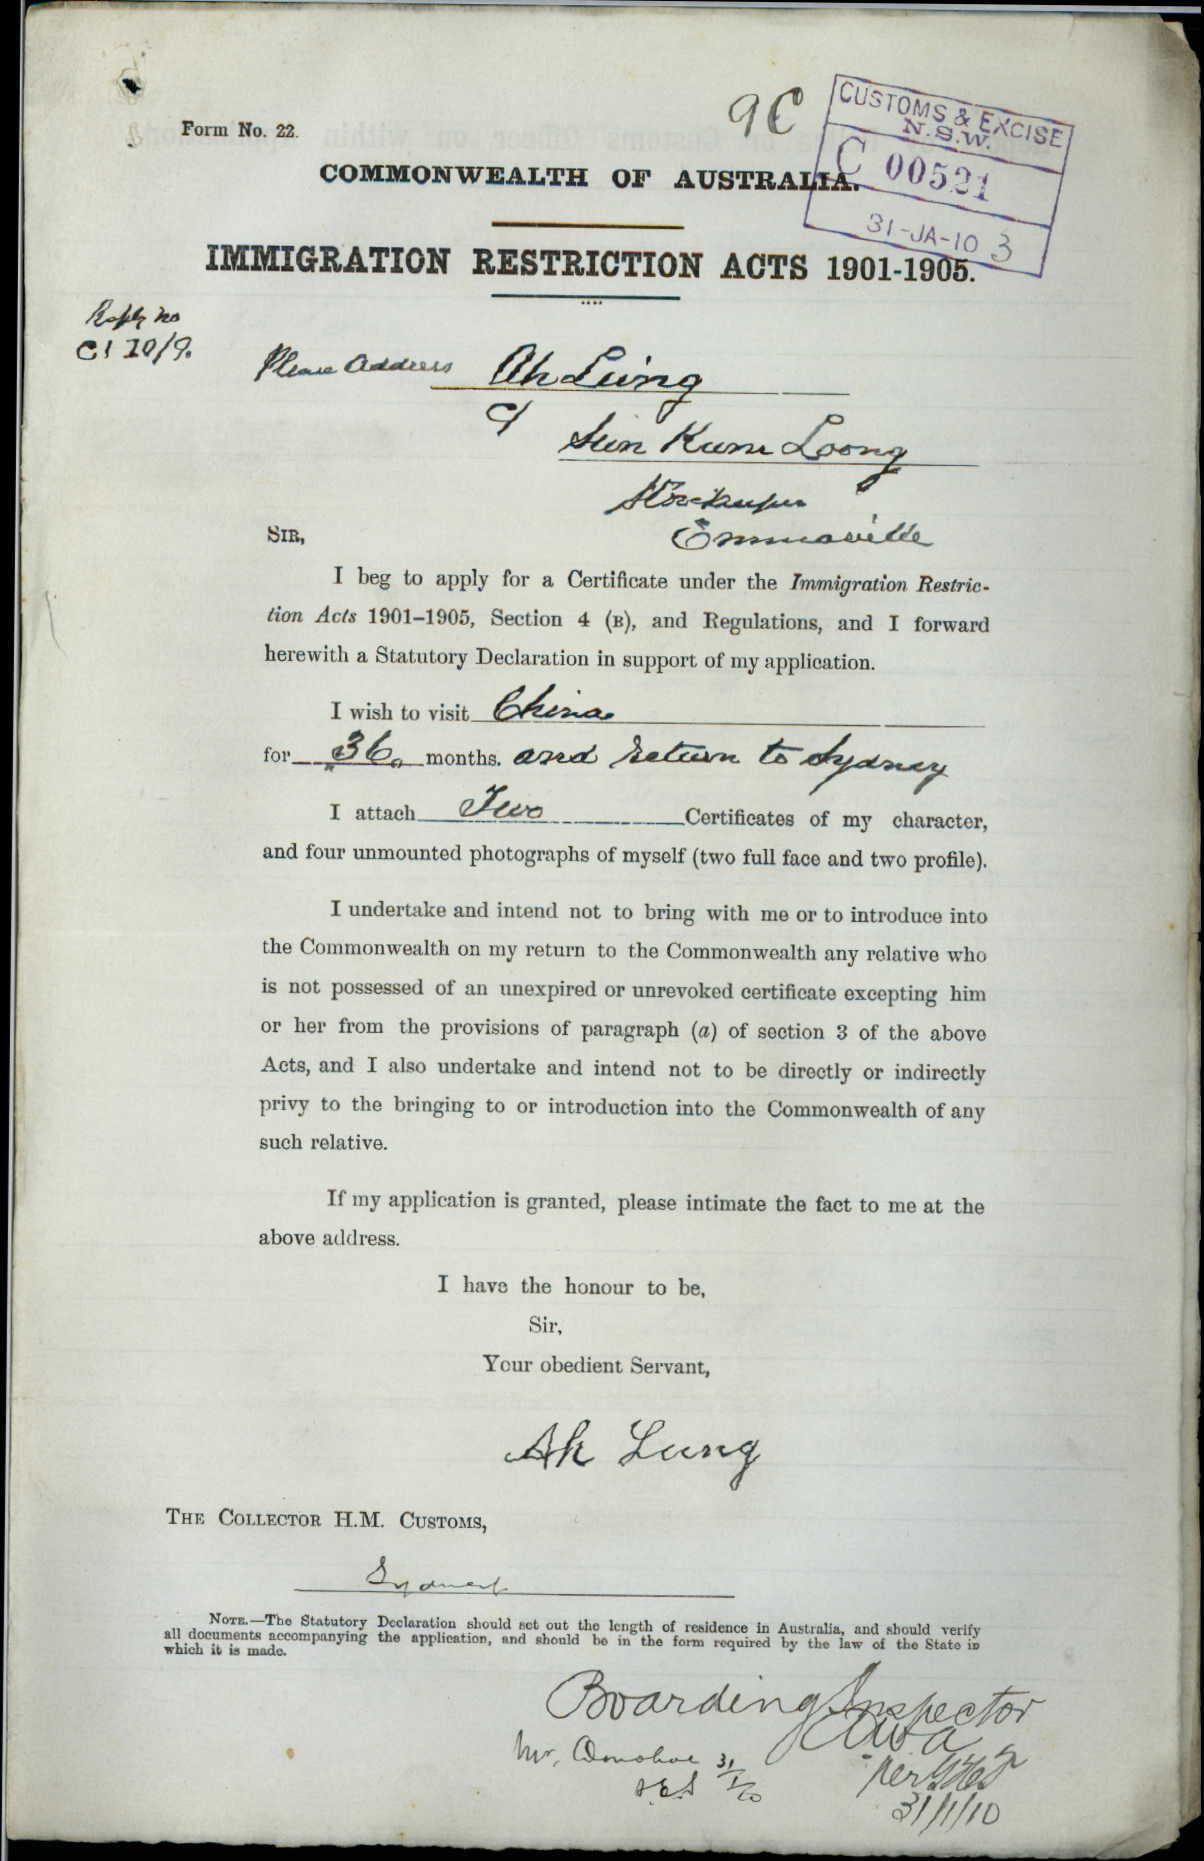 9C
CUSTOMS & EXCISE
N.S.W.
C 00521
31-JA-10 3
Form No. 22.
COMMONWEALTH OF AUSTRALIA.
IMMIGRATION RESTRICTION ACTS 1901-1905.
Reply no
C1 10/9.
Please Address Ah Lung
C/
Sun Kum Loong
Storekeeper
Emmaville
SIR,
I beg to apply for a Certificate under the Immigration Restric-
tion Acts 1901–1905, Section 4 (B), and Regulations, and I forward
herewith a Statutory Declaration in support of my application.
I wish to visit China
for 36 months. and return to Sydney
I attach Two Certificates of my character,
and four unmounted photographs of myself (two full face and two profile).
I undertake and intend not to bring with me or to introduce into
the Commonwealth on my return to the Commonwealth any relative who
is not possessed of an unexpired or unrevoked certificate excepting him
or her from the provisions of paragraph (a) of section 3 of the above
Acts, and I also undertake and intend not to be directly or indirectly
privy to the bringing to or introduction into the Commonwealth of any
such relative.
If my application is granted, please intimate the fact to me at the
above address.
I have the honour to be,
Sir,
Your obedient Servant,
Ah Lung
THE COLLECTOR H.M. CUSTOMS,
Sydney
NOTE.—The Statutory Declaration should set out the length of residence in Australia, and should verify
all documents accompanying the application, and should be in the form required by the law of the State in
which it is made.
Boarding Inspector
Mr. Donohoe 31/1/10
per
31/1/10